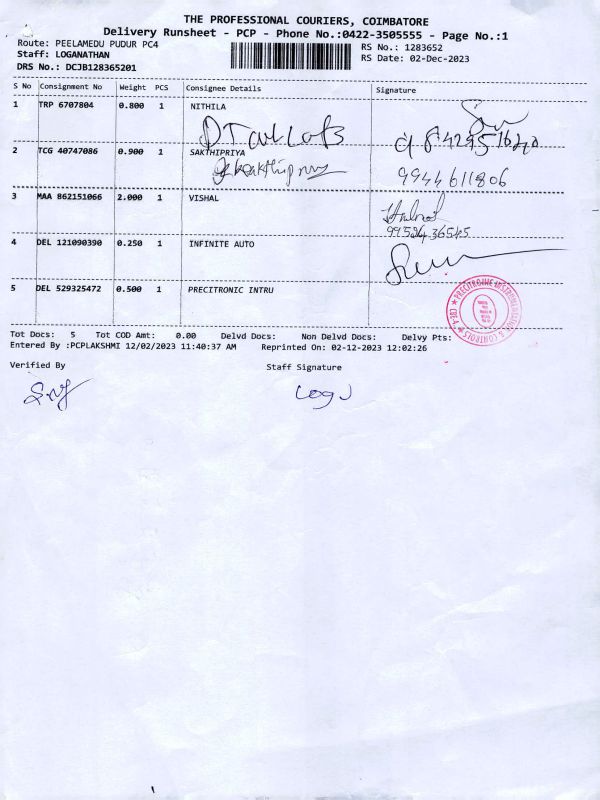 THE PROFESSIONAL COURIERS, COIMBATORE
Delivery Runsheet - PCP - Phone No.:0422-3505555 - Page No.:1
Route: PEELAMEDU PUDUR PC4
RS No.: 1283652
Staff: LOGANATHAN
RS Date: 02-Dec-2023
DRS No.: DCJB128365201
S No Consignment No Weight PCS Consignee Details Signature
1 TRP 6707804 0.800 1 NITHILA
2 TCG 40747086 0.900 1 SAKTHIPRIYA
9944611806
3 MAA 862151066 2.000 1 VISHAL
4 DEL 121090390 0.250 1 INFINITE AUTO
5 DEL 529325472 0.500 1 PRECITRONIC INTRU
Tot Docs: 5 Tot COD Amt: 0.00 Delvd Docs: Non Delvd Docs: Delvy Pts:
Entered By :PCPLAKSHMI 12/02/2023 11:40:37 AM Reprinted On: 02-12-2023 12:02:26
Verified By Staff Signature